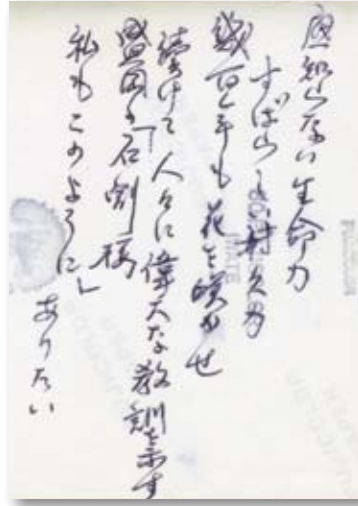 底知れない生命力
すばらしい耐久力
幾百年も花を咲かせ
続けて人々に偉大な教訓を示す
盛岡の石割桜
「私もこのように」
ありたい